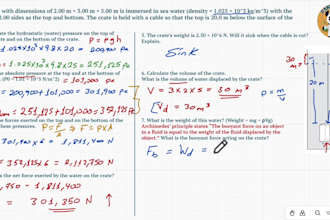 with dimensions of 2.00 m × 3.00 m × 5.00 m is immersed in sea water (density = 1.025 × 10³ kg/m³) with
3.00 sides as the top and bottom. The crate is held with a cable so that the top is 20.0 m below the surface of the
the hydrostatic (water) pressure on the top of
and on the bottom of the crate.
P = ρgh
1.025×10³ × 9.8 × 20 = 200,900 Pa
× 9.8 × 25 = 251,125 Pa
absolute pressure at the top and bottom of the
= 101,000 Pa
200,900 + 101,000 = 301,900 Pa
251,125 + 101,000 = 352,125
forces exerted on the top and on the bottom of
P = F/A ⇒ F = P×A
301,900 × 6 = 1,811,400 N
352,125 × 6 = 2,112,750 N
the net force exerted by the water on the crate?
,750 − 1,811,400
= 301,350 N ↑
5. The crate's weight is 2.50 × 10⁵ N. Will it sink when the cable is cut?
Explain.
Sink
6. Calculate the volume of the crate.
What is the volume of water displaced by the crate?
V = 3 × 2 × 5 = 30 m³
Vd = 30 m³
ρ = m/V
30 m³
20 m
7. What is the weight of this water? (Weight = mg = ρVg)
Archimedes' principle states "The buoyant force on an object
in a fluid is equal to the weight of the fluid displaced by the
object." What is the buoyant force acting on the crate?
Fb = Wd =